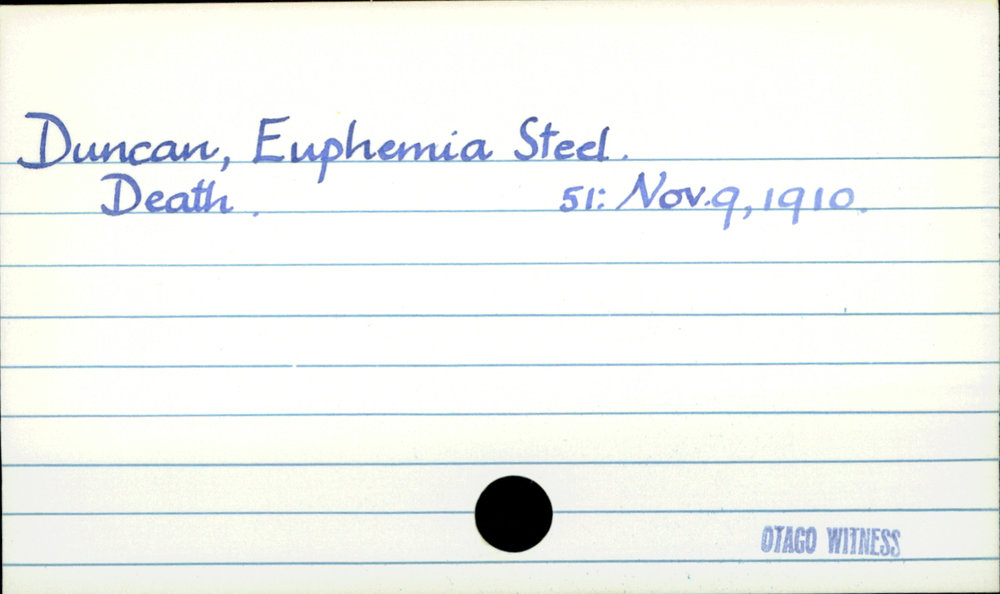 Duncan, Euphemia Steel.
Death. 51: Nov. 9, 1910.
OTAGO WITNESS